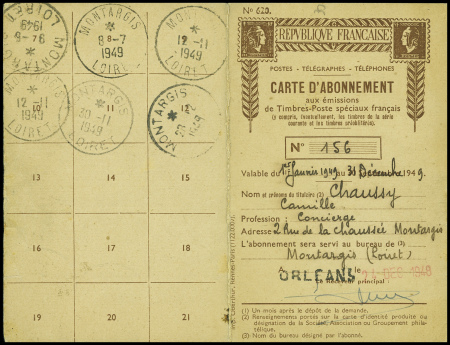 MONTARGIS
9-6
1949
LOIRET
MONTARGIS
8-7
1949
LOIRET
MONTARGIS
12-11
1949
LOIRET
12-11
1949
LOIRET
MONTARGIS
30-11
1949
LOIRET
MONTARGIS
13
14
15
16
17
18
19
20
21
N° 620.
RÉPUBLIQUE FRANÇAISE
POSTES - TÉLÉGRAPHES - TÉLÉPHONES
CARTE D'ABONNEMENT
aux émissions
de Timbres-Poste spéciaux français
(y compris, éventuellement, les timbres de la série
courante et les timbres préoblitérés).
N° 156
Valable du 1er Janvier 1949 au 31 Décembre 1949.
Nom et prénoms du titulaire (2) Chaussy
Camille
Profession : Concierge
Adresse : 2 Rue de la chaussée Montargis
L'abonnement sera servi au bureau de (3)
Montargis (Loiret)
ORLEANS le 24 DEC 1948
Le Receveur principal :
(1) Un mois après le dépôt de la demande.
(2) Renseignements portés sur la carte d'identité produite ou
désignation de la Société, Association ou Groupement phila-
télique.
(3) Nom du bureau désigné par l'abonné.